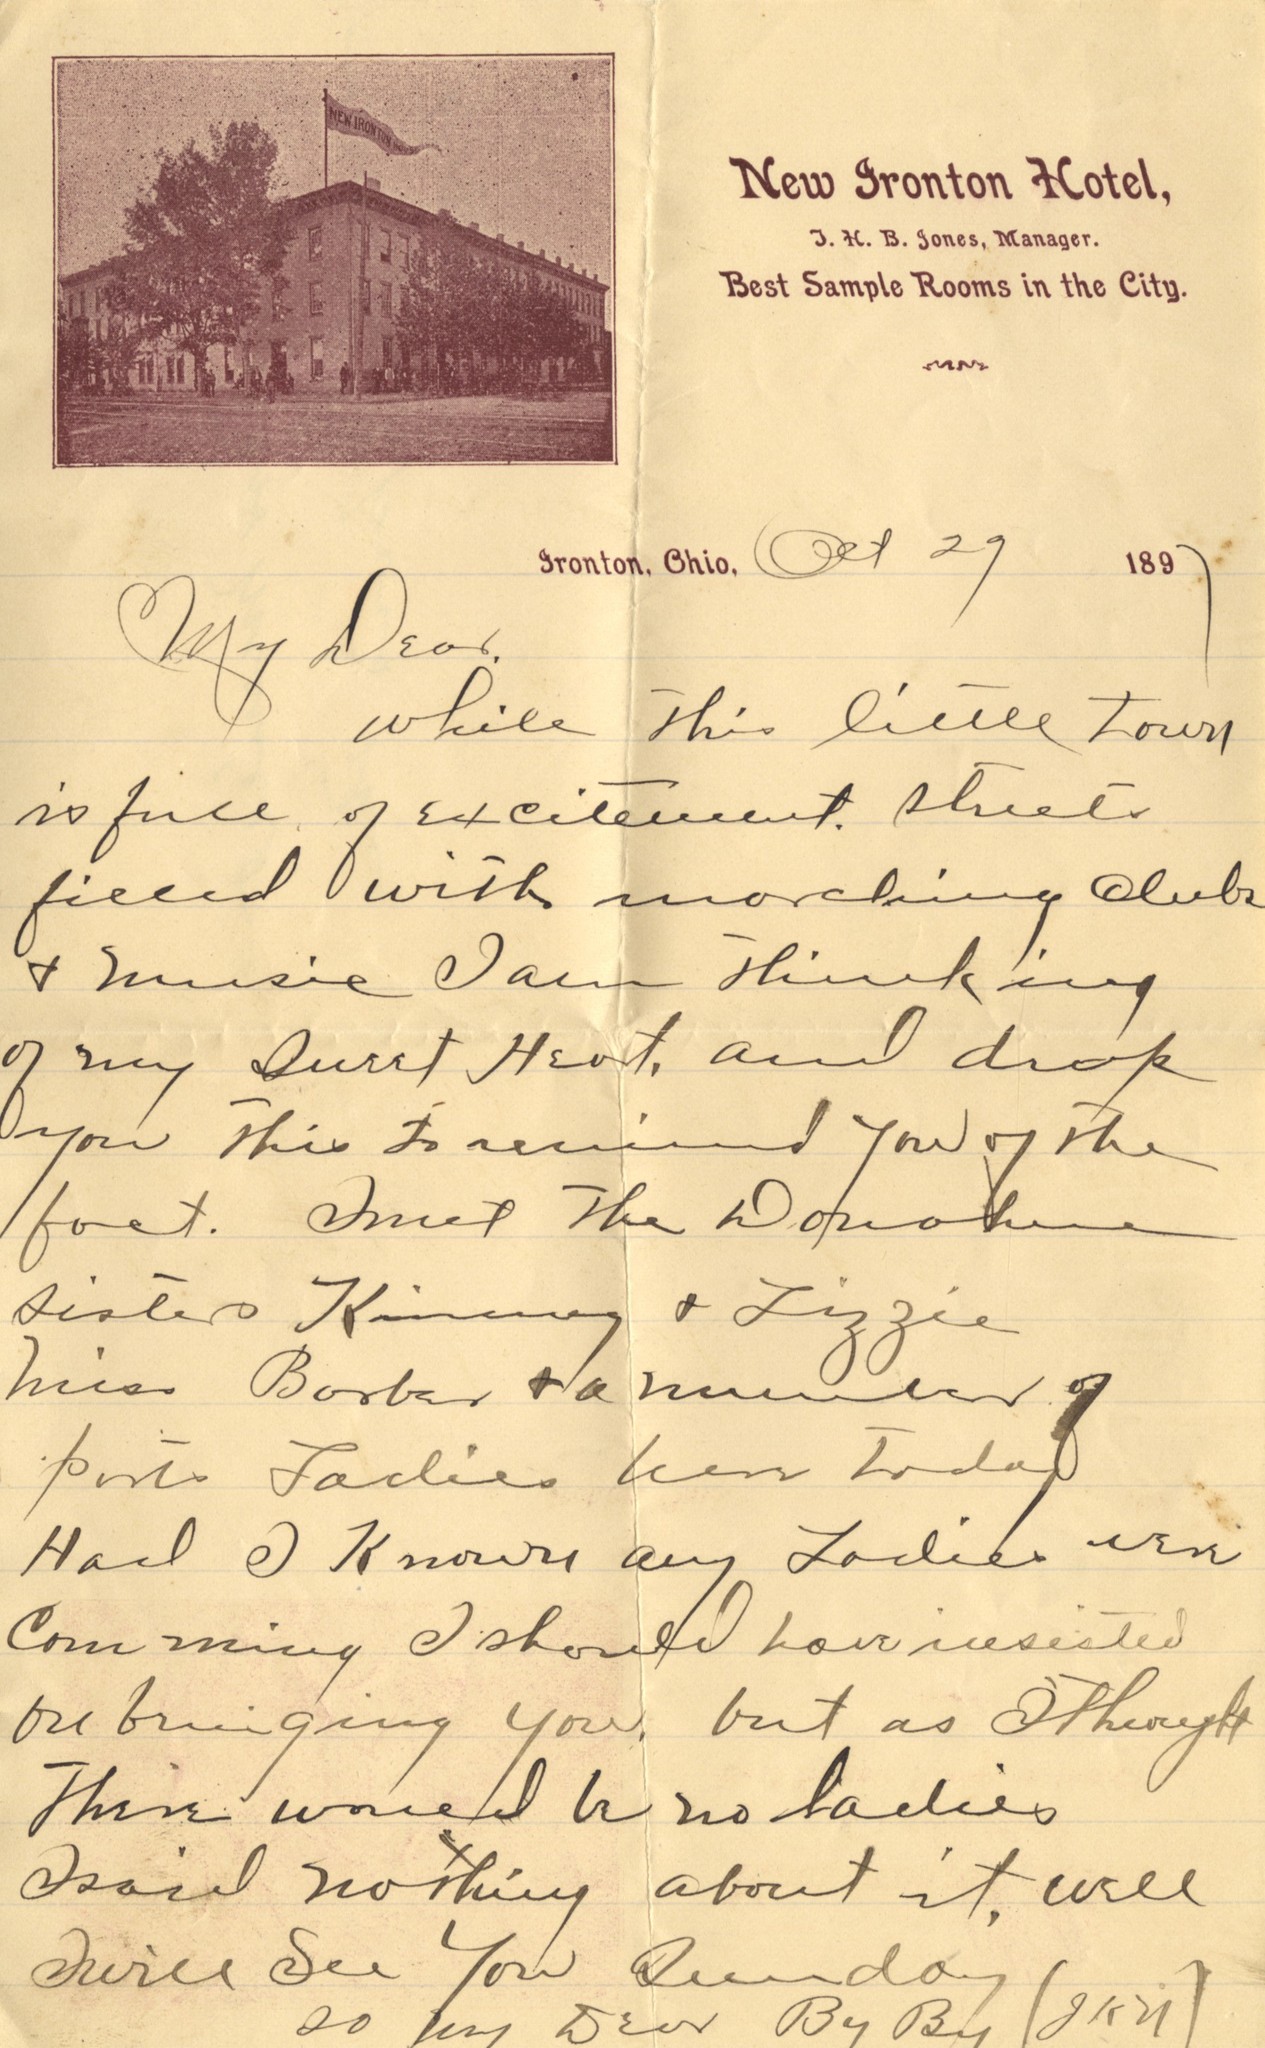 NEW IRONTON
New Ironton Hotel,
J. H. B. Jones, Manager.
Best Sample Rooms in the City.
Ironton, Ohio, Oct 29 1897
My Dear.
while this little town
is full of excitement. streets
filled with marching Clubs
& music I am thinking
of my Sweet Heart. and drop
you this to remind you of the
fact. I met the Donohue
sisters Kinney & Lizzie
Miss Barber & a number of
Ports Ladies here today
Had I Known any Ladies were
Comming I should have insisted
on bringing you. but as I thought
there would be no Ladies
I said nothing about it. well
I will See You Sunday
so my Dear By By (JKM)